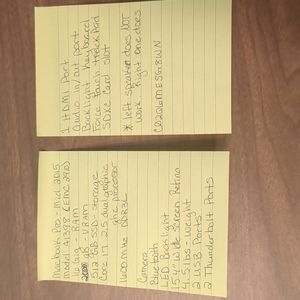 Macbook Pro - Mid 2015
Model A1398 (EMC 2910)
16 GB - RAM
2 GB - VRAM
512 GB SSD storage
Core i7 2.5 dual graphic
1600 MHz DDR3L
Camera
Bluetooth
LED Backlight
15.4" Wide Screen Retina
4.5 lbs - Weight
2 USB Ports
2 Thunderbolt Ports
1 HDMI Port
Audio in/out port
Backlight keyboard
Force touch trackpad
SDXC Card slot
* left speaker does NOT
work Right one does